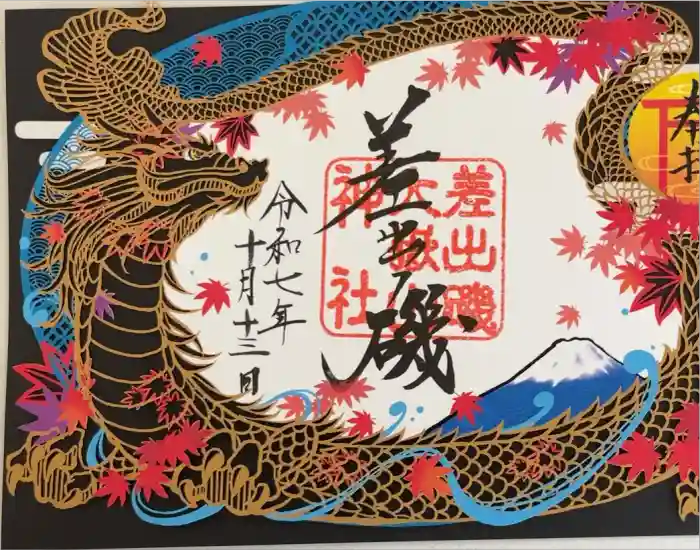 奉拝
差出磯
差出磯
大嶽山
神社
令和七年
十月十三日